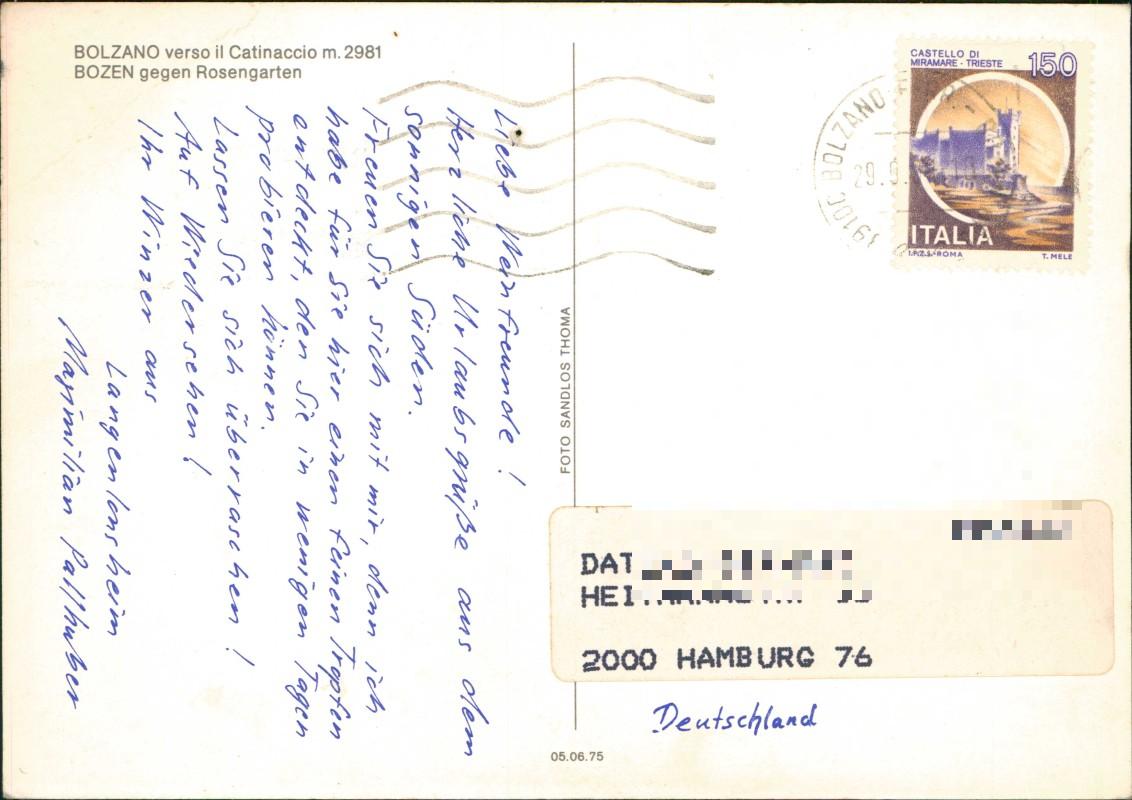 BOLZANO verso il Catinaccio m. 2981
BOZEN gegen Rosengarten
Liebe Weinfreunde!
Herzliche Urlaubsgrüße aus dem
sonnigen Süden.
Freuen Sie sich mit mir, denn ich
habe für Sie hier einen feinen Tropfen
entdeckt, den Sie in wenigen Tagen
probieren können.
Lassen Sie sich überraschen!
Auf Wiedersehen!
Ihr Winzer aus
Langenlonsheim
Maximilian Pallhuber
FOTO SANDLOS THOMA
05.06.75
CASTELLO DI
MIRAMARE - TRIESTE
150
ITALIA
I.P.Z.S. ROMA
T. MELE
BOLZANO
29.
DAT
HEI
2000 HAMBURG 76
Deutschland